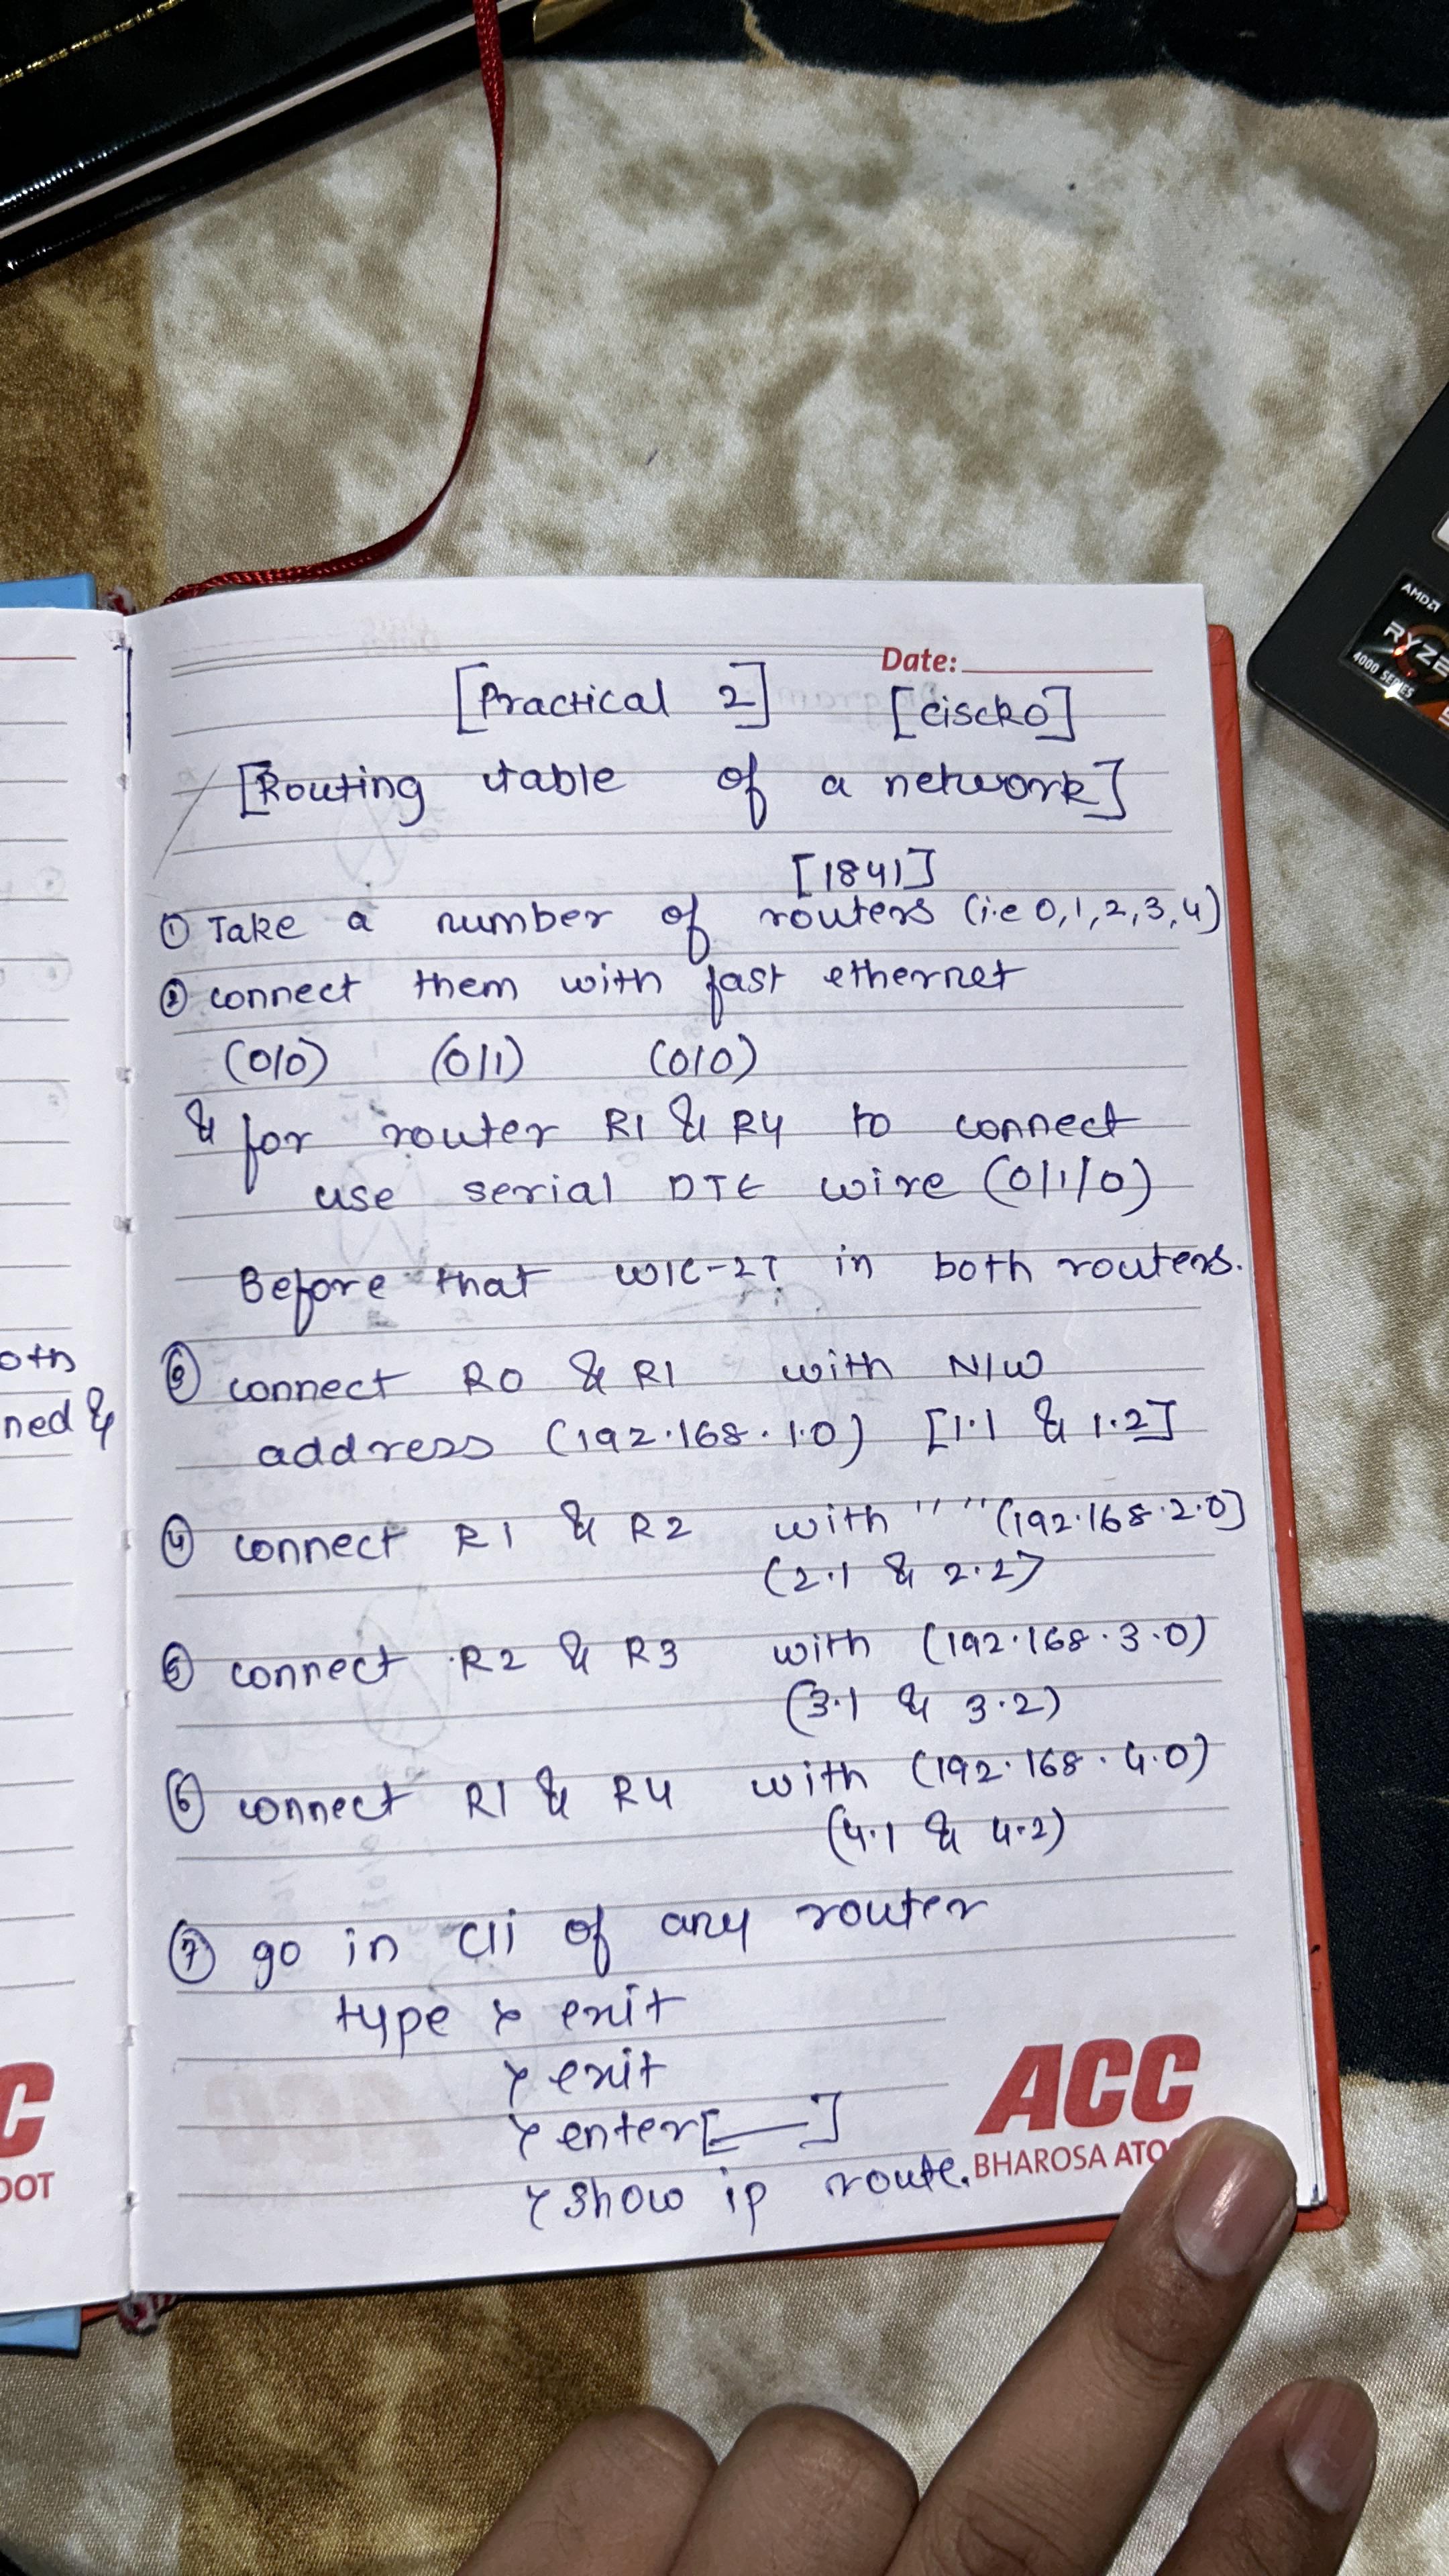 Date:
[Practical 2] [ciscko]
[Routing table of a network]
[1841]
① Take a number of routers (i.e 0,1,2,3,4)
② connect them with fast ethernet
(0/0) (0/1) (0/0)
& for router R1 & R4 to connect
use serial DTE wire (0/1/0)
Before that WIC-2T in both routers.
③ connect R0 & R1 with N/W
address (192.168.1.0) [1.1 & 1.2]
④ connect R1 & R2 with " " (192.168.2.0]
(2.1 & 2.2)
⑤ connect R2 & R3 with (192.168.3.0)
(3.1 & 3.2)
⑥ connect R1 & R4 with (192.168.4.0)
(4.1 & 4.2)
⑦ go in cli of any router
type > exit
> exit
> enter[—]
> show ip route.
ACC
BHAROSA
oth
ned &
C
OOT
AMD
RYZE
4000 SERIES